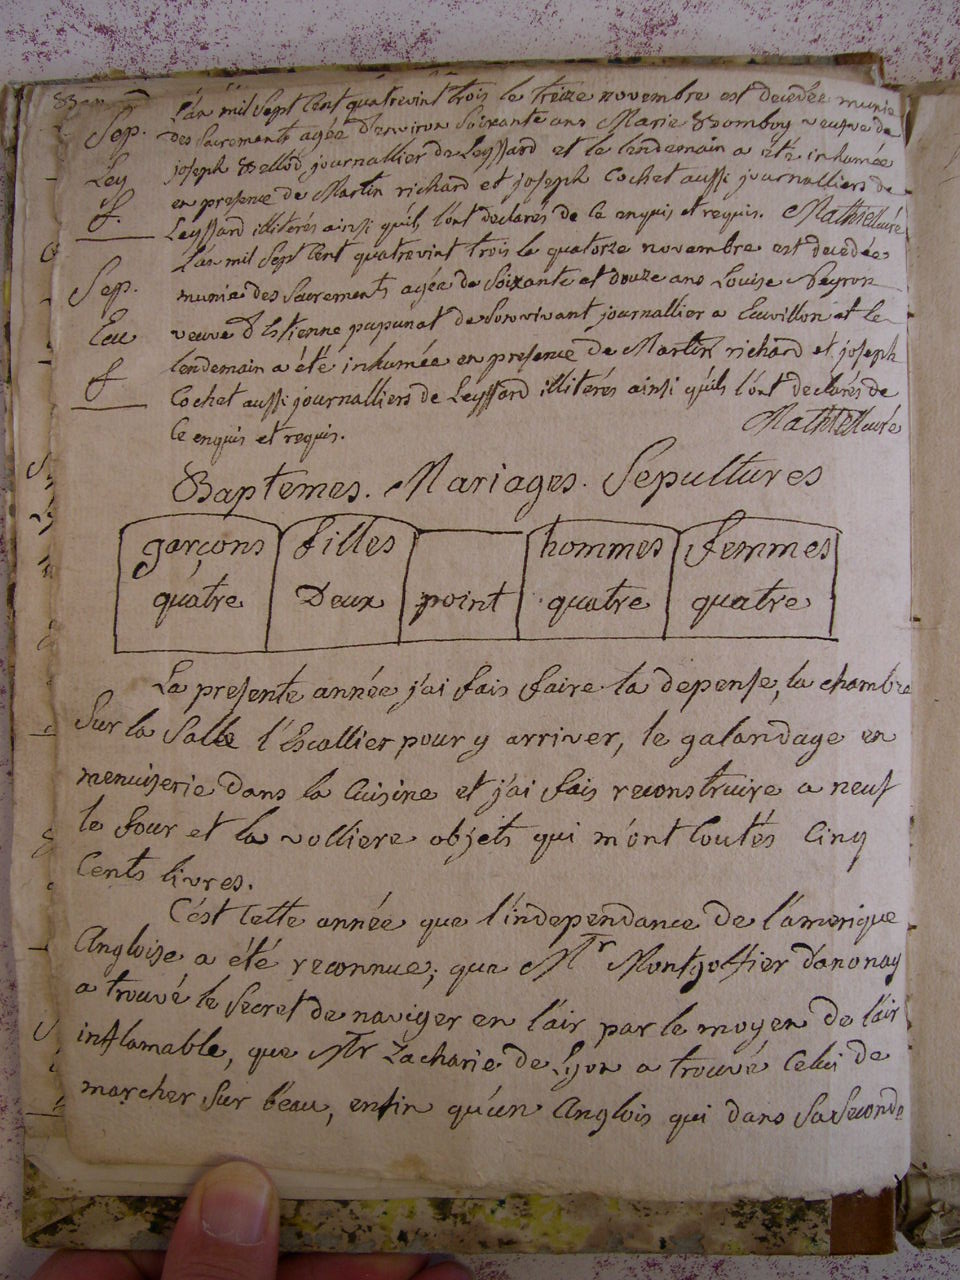 L'an mil sept cent quatrevint trois le treize novembre est decedée munie
Sep. des Sacrements agée d'environ Soixante ans Marie Bomboy veufve de
Ley joseph Vellod journallier de Leyssard et le lendemain a été inhumée
f. en presence de Martin richard et joseph Cochet aussi journalliers de
Leyssard illitérés ainsi quils l'ont déclarés de ce enquis et requis. Math curé
L'an mil sept cent quatrevint trois le quatorze novembre est decedée
Sep. munie des Sacrements agée de Soixante et douze ans Louise Neyron
Eeu veuve d'Estienne papunat de Son vivant journallier a Eeuvillon et le
lendemain a été inhumée en presence de Martin richard et joseph
f. Cochet aussi journalliers de Leyssard illitérés ainsi quils l'ont declarés de
ce enquis et requis. Math curé
Baptemes. Mariages. Sepultures
garçons filles hommes femmes
quatre Deux point quatre quatre
La presente année j'ai fais faire la depense, la chambre
Sur la Salle l'Escallier pour y arriver, le galandage en
menuiserie dans la Cuisine et j'ai fais reconstruire a neuf
le four et la volliere objets qui m'ont Coutés Cinq
Cents livres.
C'est Cette année que l'independance de l'amerique
Angloise a été reconnue; que Mr Montgolfier d'anonay
a trouvé le Secret de naviger en l'air par le moyen de l'air
inflamable, que Mr Zacharie de Lyon a trouvé Celui de
marcher Sur l'eau, enfin qu'un Anglois qui dans Sa Seconde